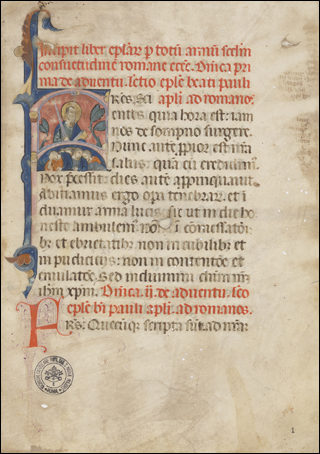 Incipit liber ep̄lar̄ p totū annū scdm
consuetudinē romane ecc̄e. Dñica pri
ma de adventu. letio ep̄le beati pauli
Res. Sci apli ad romano
entes quia hora est iam
nos de sompno surgere.
Nunc autē propior est nr̄a
salus: quā cū credidim
Nox p̄cessit: dies autē appinquauit
Abiciamus ergo opa tenebrar̄: et i
duamur arma lucis. sic ut in die ho
neste ambulem. non ī comessatōi
bꝫ et ebrietatibꝫ: non in cubilibꝫ et
in pudicicijs: non in contentōe et
emulatōe. Sed induimini dn̄m nr̄m
ih̄m xp̄m. Dñica .ij. de adventu. leō
ep̄le bī pauli apli. ad romanos.
Frs: Quecūqꝫ scripta sūt. ad nr̄am
1